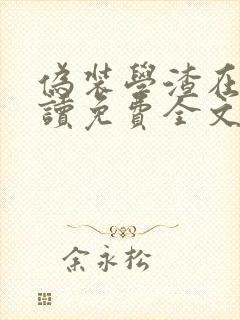 偽裝學渣在
讀免費全文
余永松